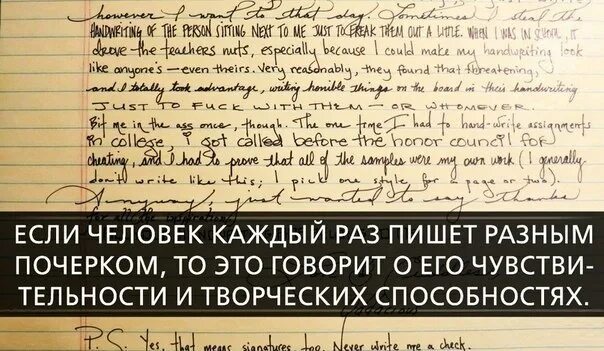 however I want to that day. Sometimes I steal the
HANDWRITING OF THE PERSON SITTING NEXT TO ME JUST TO FREAK THEM OUT A LITTLE. WHEN I WAS IN SCHOOL, IT
drove the teachers nuts, especially because I could make my handwriting look
like anyone's — even theirs. Very reasonably, they found that threatening,
and I totally took advantage, writing horrible things on the board in their handwriting
JUST TO FUCK WITH THEM — OR WHOMEVER.
Bit me in the ass once, though. The one time I had to hand-write assignments
in college, I got called before the honor council for
cheating, and I had to prove that all of the samples were my own work (I generally
don't write like this; I pick one style for a page or two).
Anyway, just wanted to say thanks
for all the
ЕСЛИ ЧЕЛОВЕК КАЖДЫЙ РАЗ ПИШЕТ РАЗНЫМ
ПОЧЕРКОМ, ТО ЭТО ГОВОРИТ О ЕГО ЧУВСТВИ-
ТЕЛЬНОСТИ И ТВОРЧЕСКИХ СПОСОБНОСТЯХ.
P.S. Yes, that means signatures too. Never write me a check.